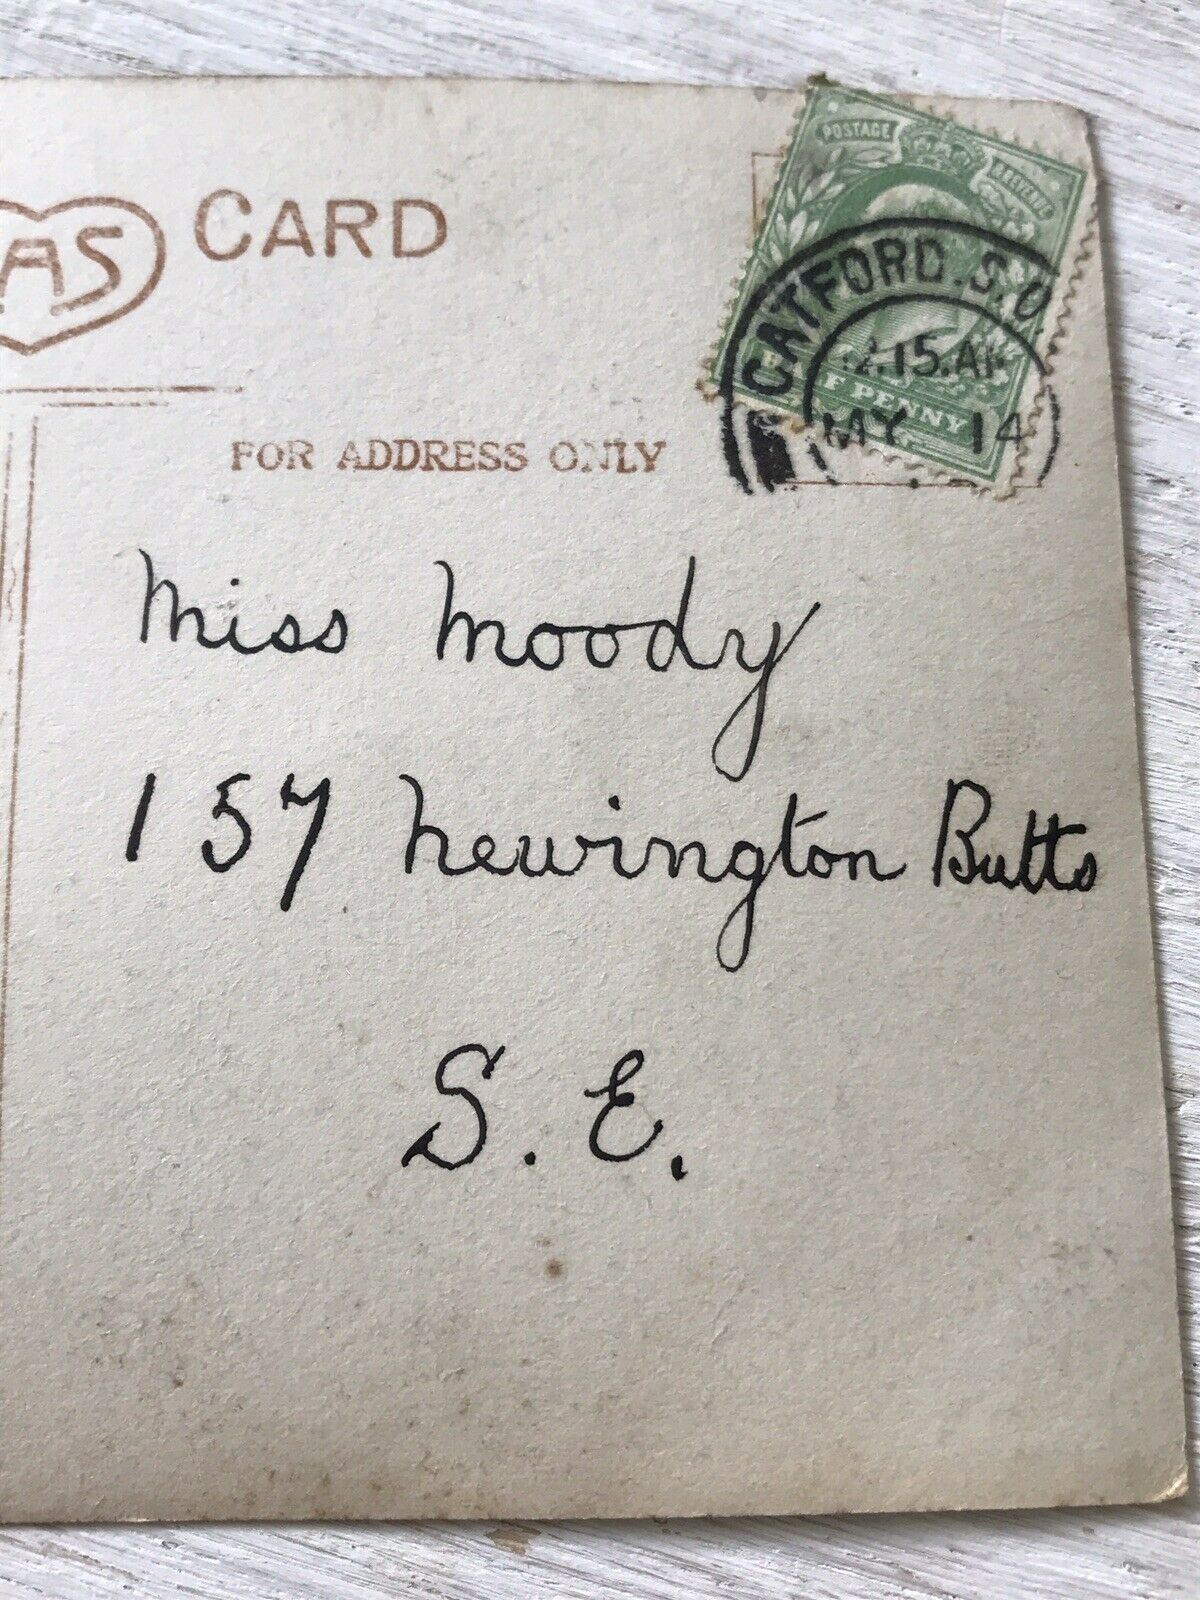 AS CARD
POSTAGE
& REVENUE
CATFORD. S.O.
2.15.AM
F PENNY
MY 14
FOR ADDRESS ONLY
Miss Moody
157 Newington Butts
S. E.